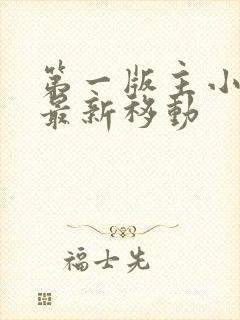 第一版主小
最新移动
福士先